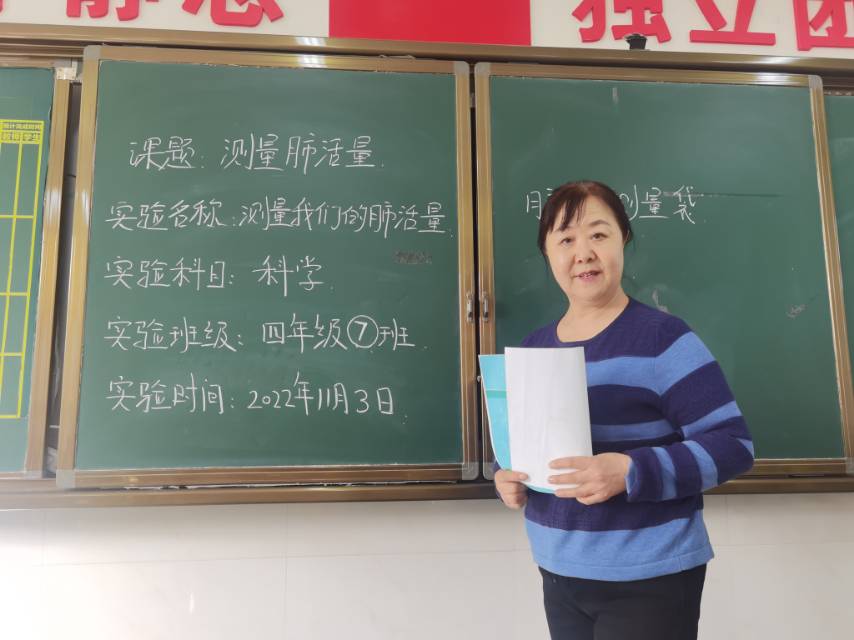 静思
独立
预计完成时间
教师 学生
课题:测量肺活量.
实验名称:测量我们的肺活量.
实验科目:科学.
实验班级:四年级⑦班.
实验时间:2022年11月3日.
测量袋